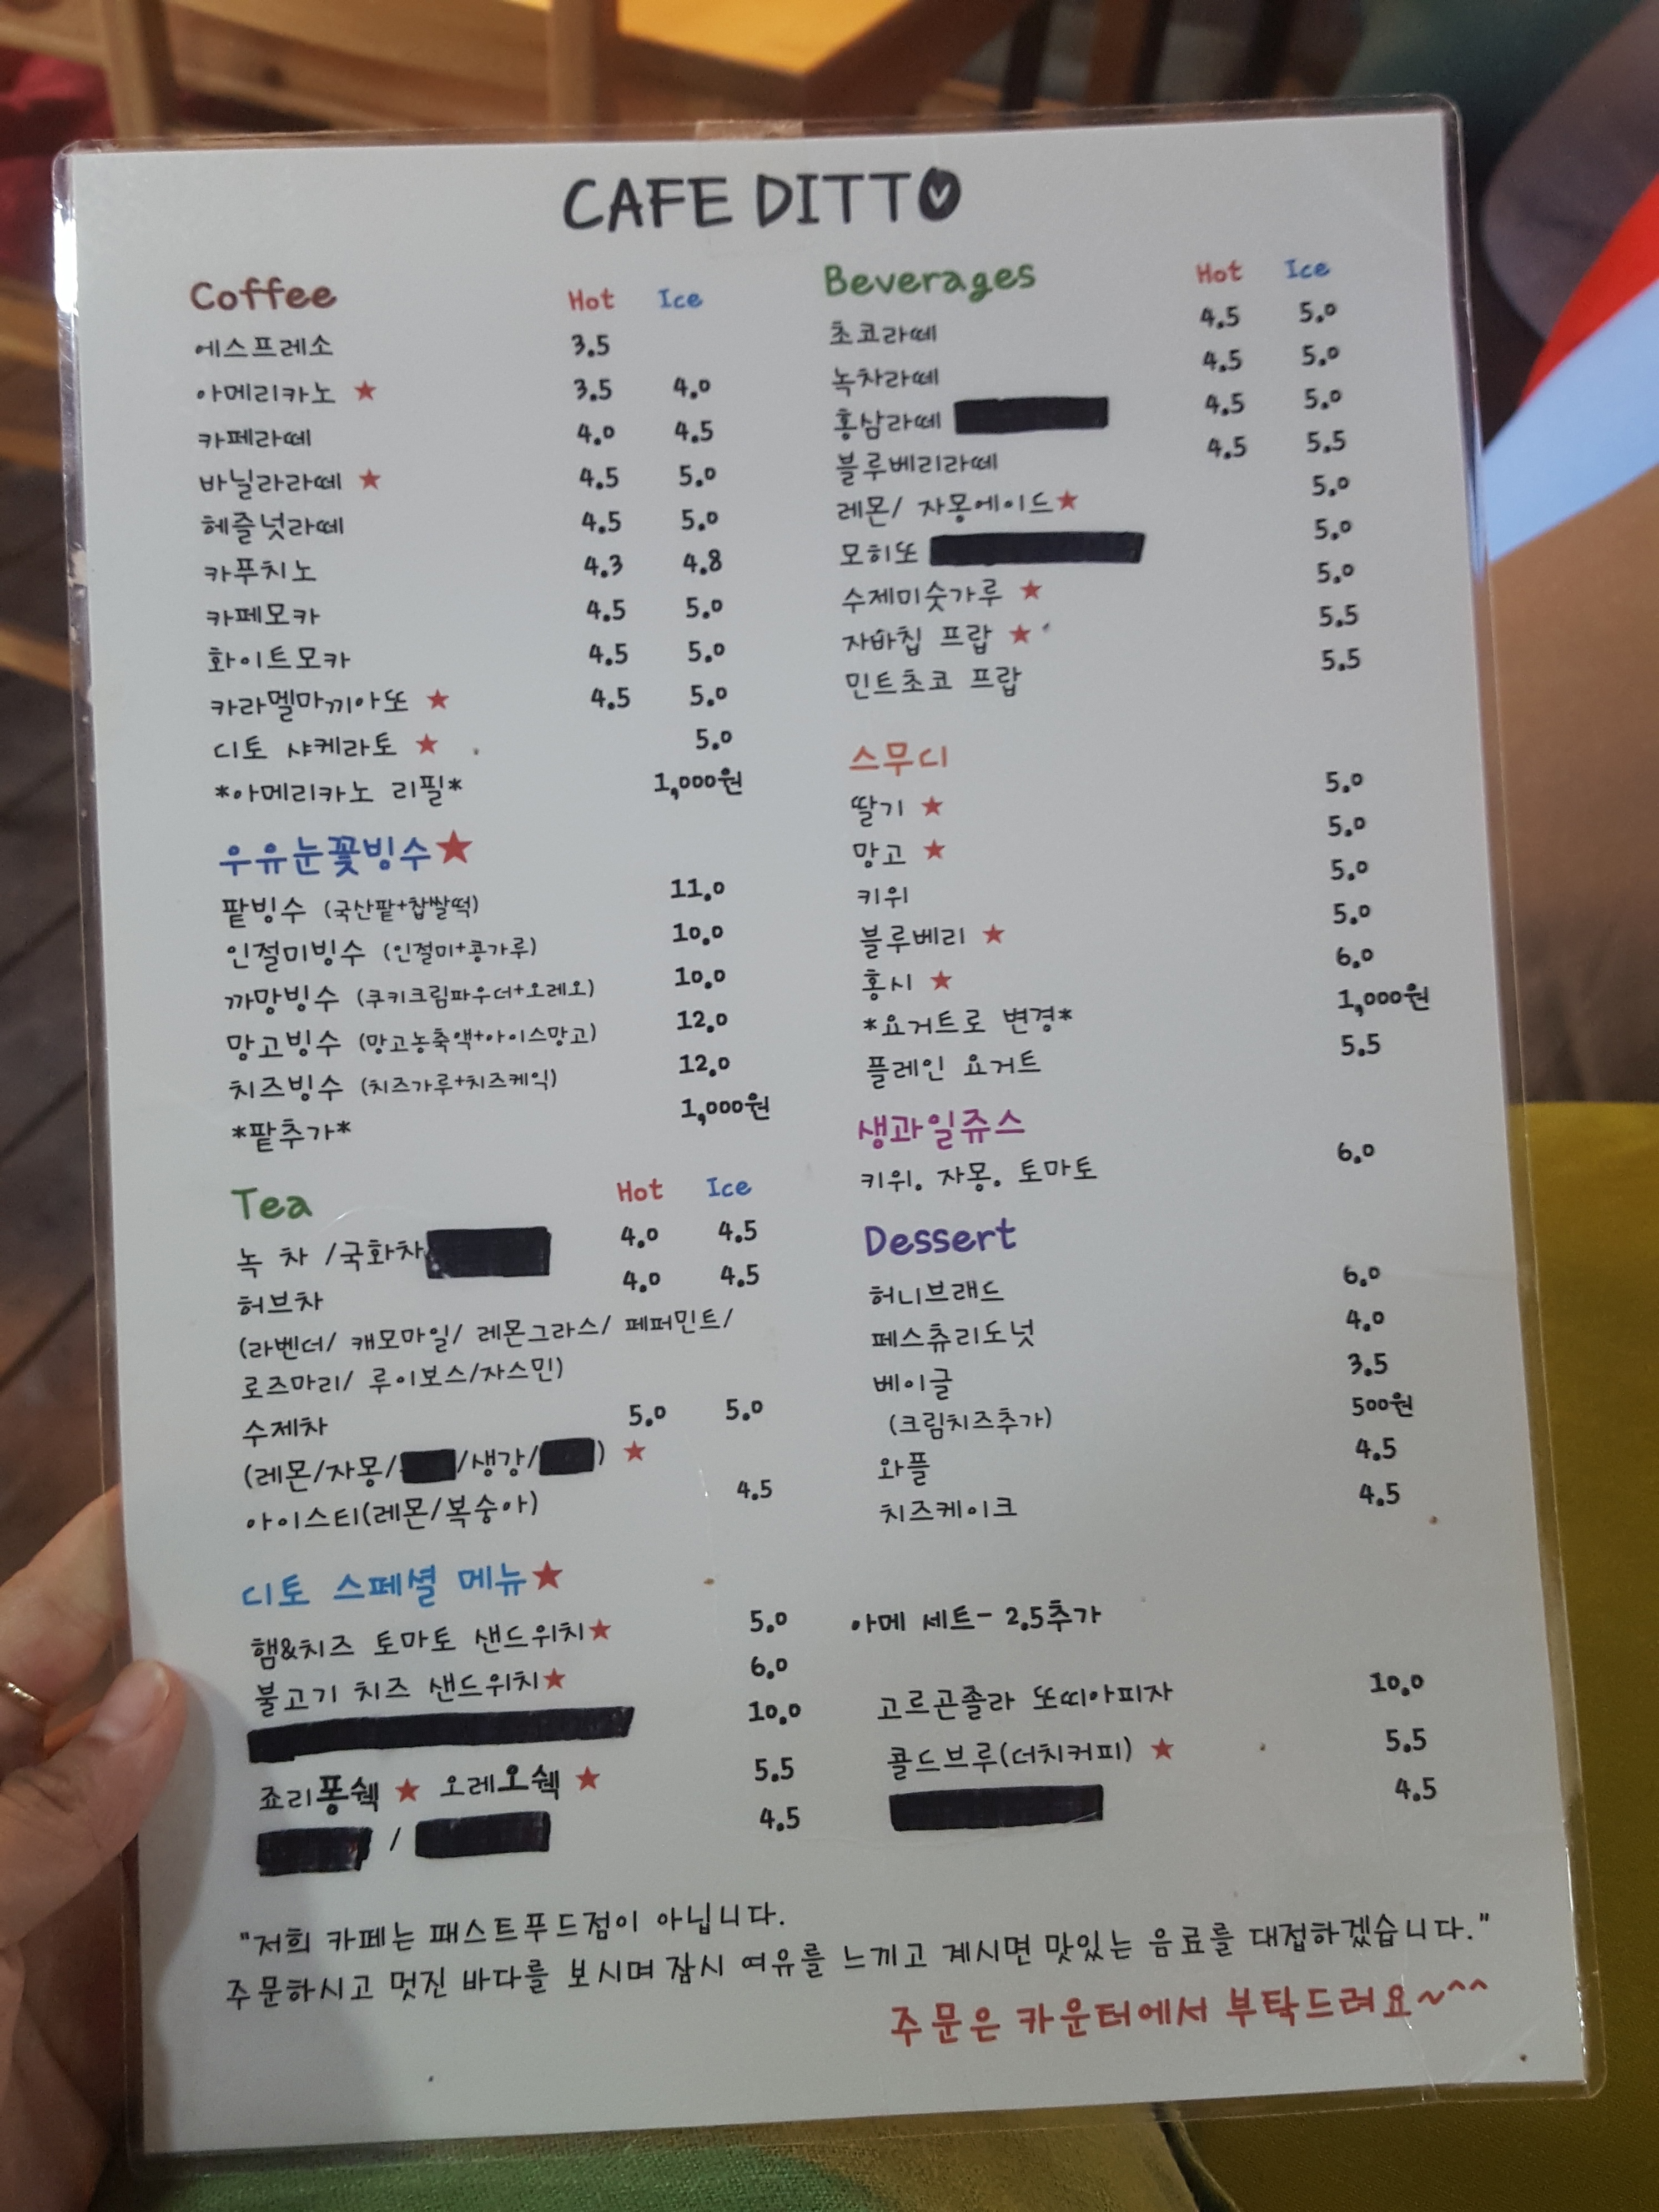 CAFE DITTO
Coffee Hot Ice
에스프레소 3.5
아메리카노 ★ 3.5 4.0
카페라떼 4.0 4.5
바닐라라떼 ★ 4.5 5.0
헤즐넛라떼 4.5 5.0
카푸치노 4.3 4.8
카페모카 4.5 5.0
화이트모카 4.5 5.0
카라멜마끼아또 ★ 4.5 5.0
디토 샤케라토 ★ 5.0
*아메리카노 리필* 1,000원
우유눈꽃빙수★
팥빙수 (국산팥+찹쌀떡) 11.0
인절미빙수 (인절미+콩가루) 10.0
까망빙수 (쿠키크림파우더+오레오) 10.0
망고빙수 (망고농축액+아이스망고) 12.0
치즈빙수 (치즈가루+치즈케익) 12.0
*팥추가* 1,000원
Tea Hot Ice
녹 차 /국화차 4.0 4.5
허브차 4.0 4.5
(라벤더/ 캐모마일/ 레몬그라스/ 페퍼민트/
로즈마리/ 루이보스/자스민)
수제차 5.0 5.0
(레몬/자몽/ /생강/ ) ★
아이스티(레몬/복숭아) 4.5
디토 스페셜 메뉴★
햄&치즈 토마토 샌드위치★ 5.0
불고기 치즈 샌드위치★ 6.0
10.0
죠리퐁쉑 ★ 오레오쉑 ★ 5.5
/ 4.5
Beverages Hot Ice
초코라떼 4.5 5.0
녹차라떼 4.5 5.0
홍삼라떼 4.5 5.0
블루베리라떼 4.5 5.5
레몬/ 자몽에이드★ 5.0
모히또 5.0
수제미숫가루 ★ 5.0
자바칩 프랍 ★ 5.5
민트초코 프랍 5.5
스무디
딸기 ★ 5.0
망고 ★ 5.0
키위 5.0
블루베리 ★ 5.0
홍시 ★ 6.0
*요거트로 변경* 1,000원
플레인 요거트 5.5
생과일쥬스
키위. 자몽. 토마토 6.0
Dessert
허니브래드 6.0
페스츄리도넛 4.0
베이글 3.5
(크림치즈추가) 500원
와플 4.5
치즈케이크 4.5
아메 세트- 2.5추가
고르곤졸라 또띠아피자 10.0
콜드브루(더치커피) ★ 5.5
4.5
"저희 카페는 패스트푸드점이 아닙니다.
주문하시고 멋진 바다를 보시며 잠시 여유를 느끼고 계시면 맛있는 음료를 대접하겠습니다."
주문은 카운터에서 부탁드려요~^^